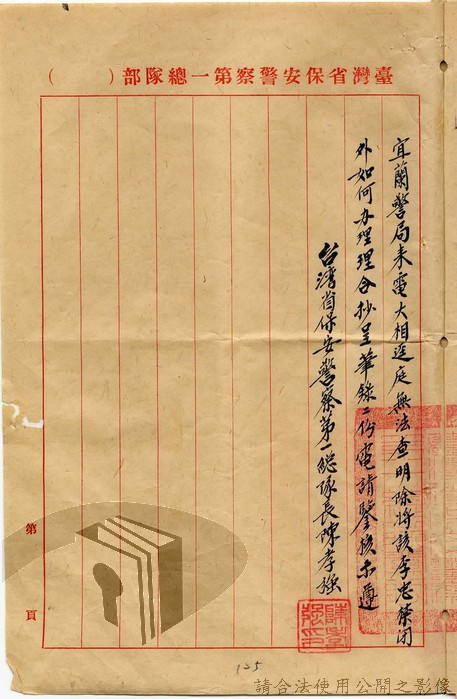 臺灣省保安警察第一總隊部（　　）
宜蘭警局來電大相逕庭無法查明除將該李忠
外如何办理理合抄呈筆錄二份電請鑒核示遵
台灣省保安警察第一總隊長陳孝強
第　頁
125
請合法使用公開之影像